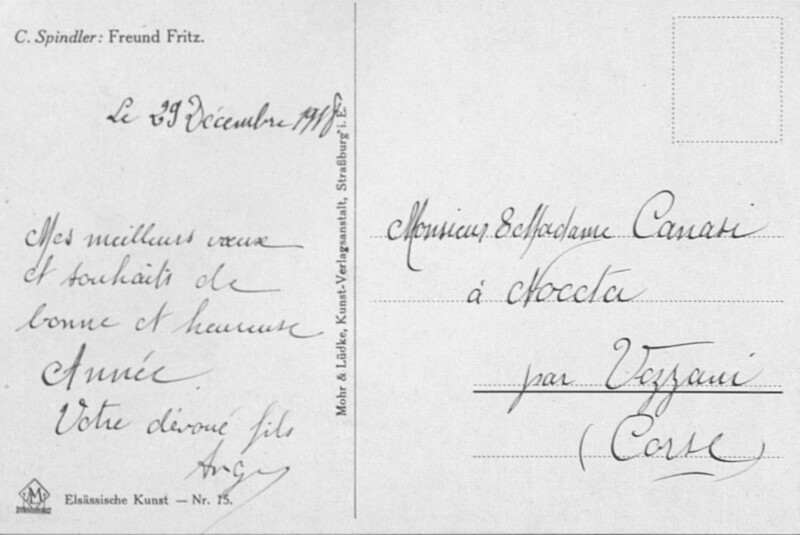 C. Spindler: Freund Fritz.
Le 29 Décembre 1918
Mes meilleurs vœux
et souhaits de
bonne et heureuse
Année.
Votre dévoué fils
Ange
Elsässische Kunst — Nr. 15.
Mohr & Lüdke, Kunst-Verlagsanstalt, Straßburg i. E.
Monsieur & Madame Canasi
à Noceta
par Vezzani
(Corse)